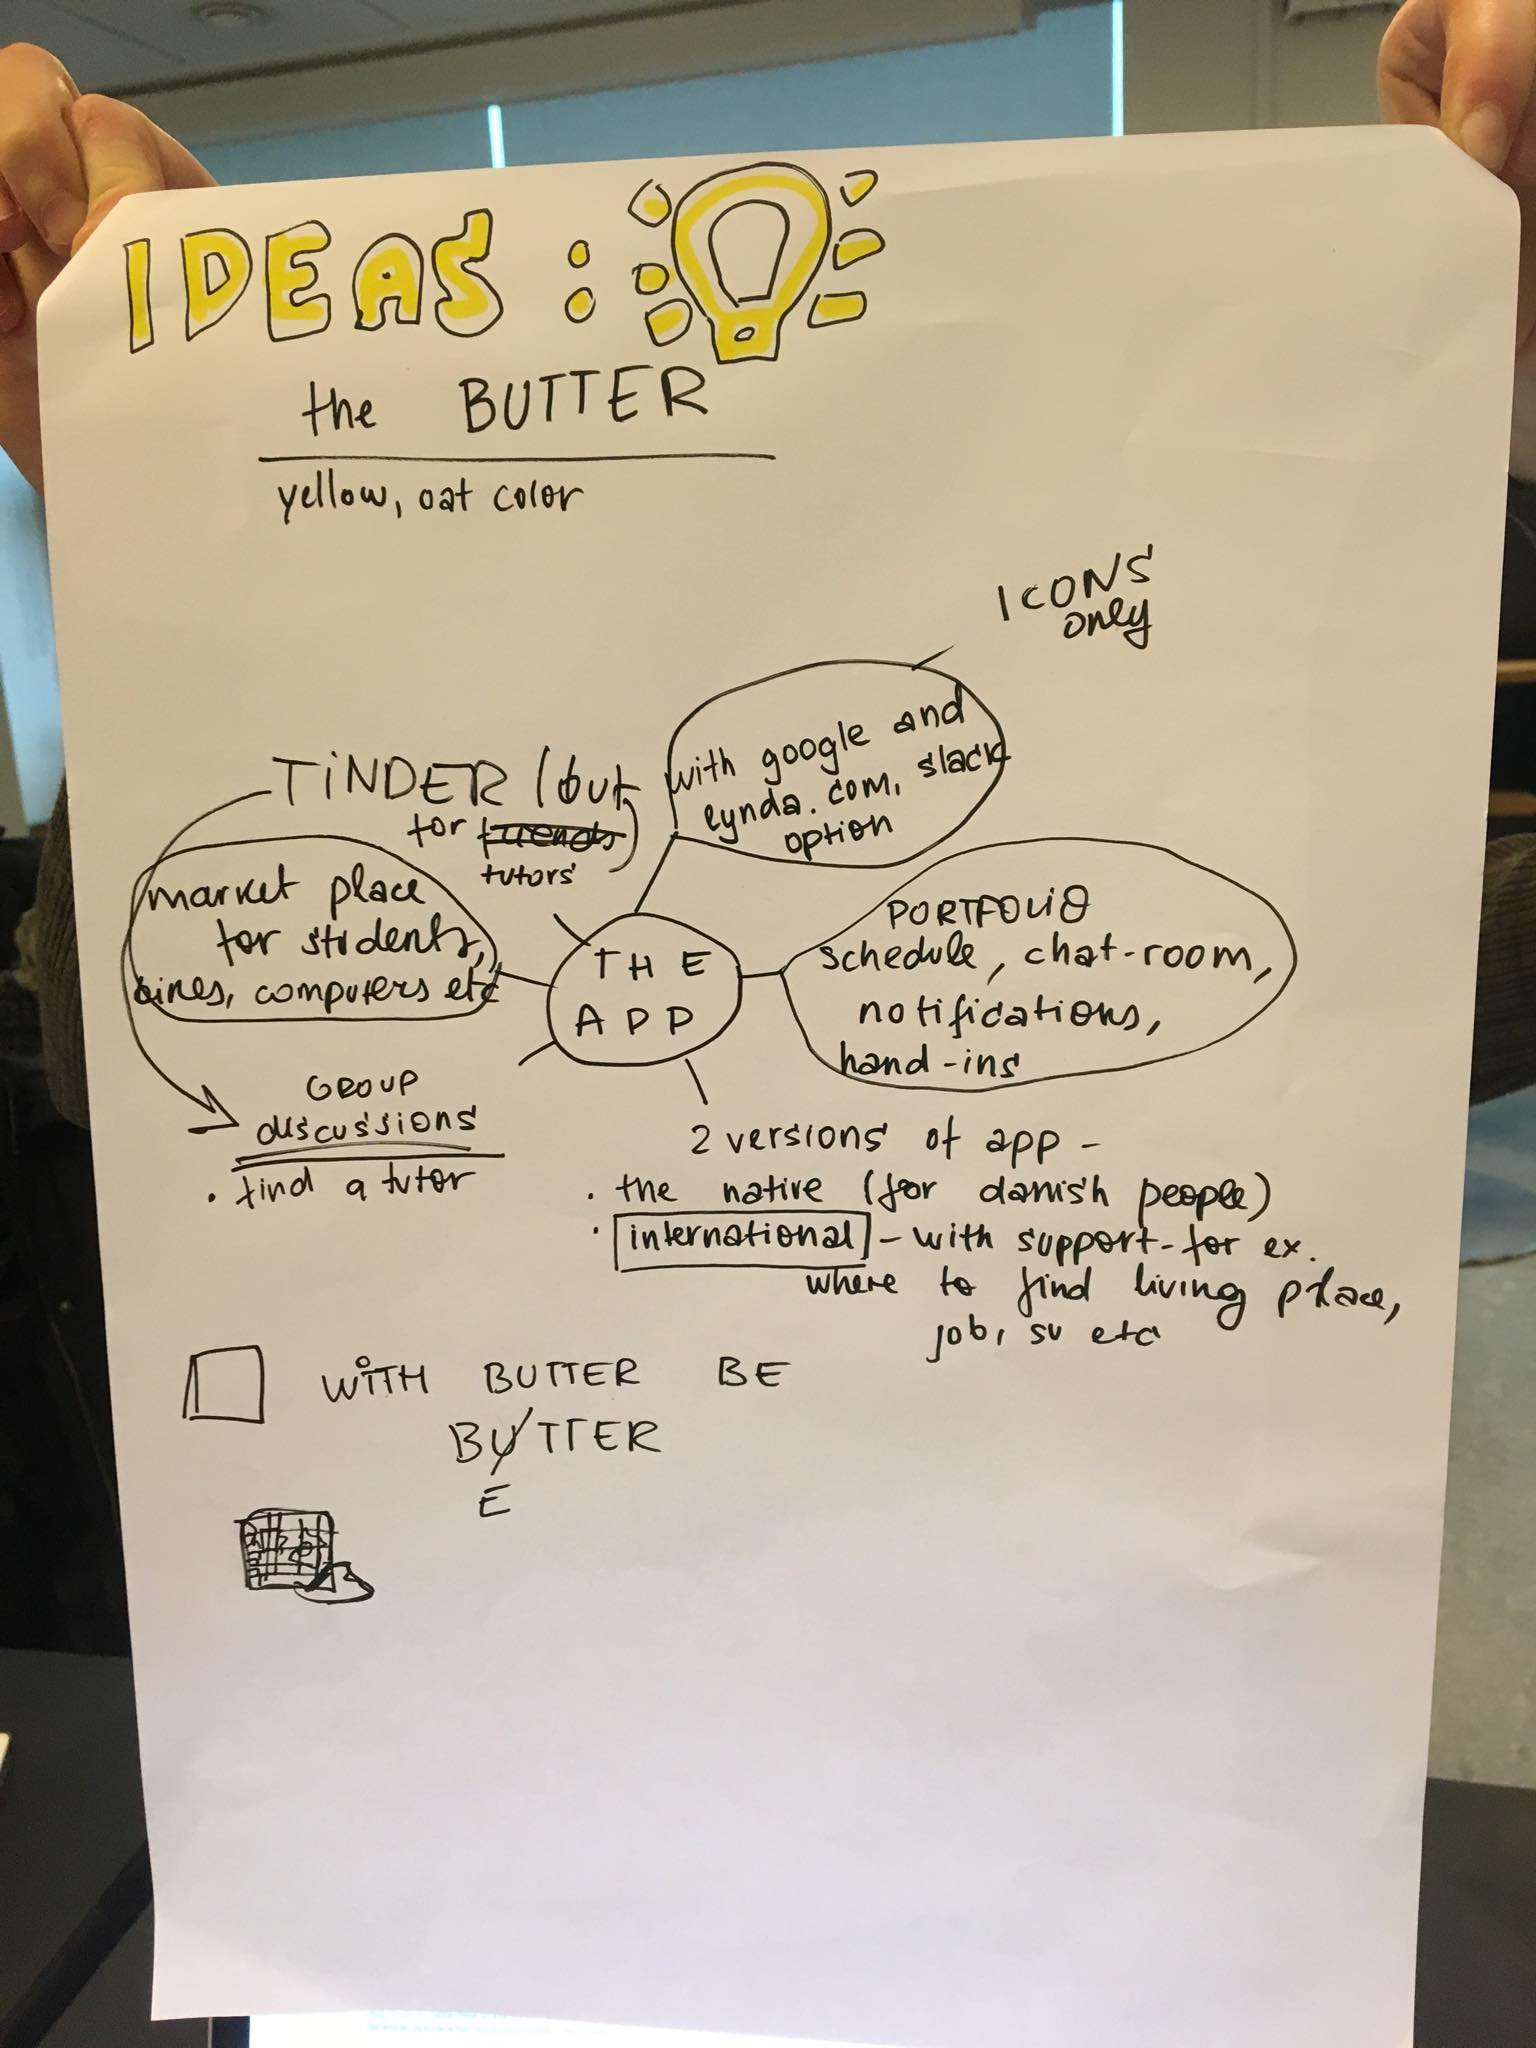 IDEAS:
the BUTTER
yellow, oat color
ICONS
only
with google and
lynda.com, slack
option
TINDER (but
for friends)
tutors
market place
for students,
bikes, computers etc
THE
APP
PORTFOLIO
schedule, chat-room,
notifications,
hand-ins
GROUP
discussions
• find a tutor
2 versions of app -
• the native (for danish people)
• international - with support - for ex.
where to find living place,
job, su etc
WITH BUTTER BE
BUTTER
E